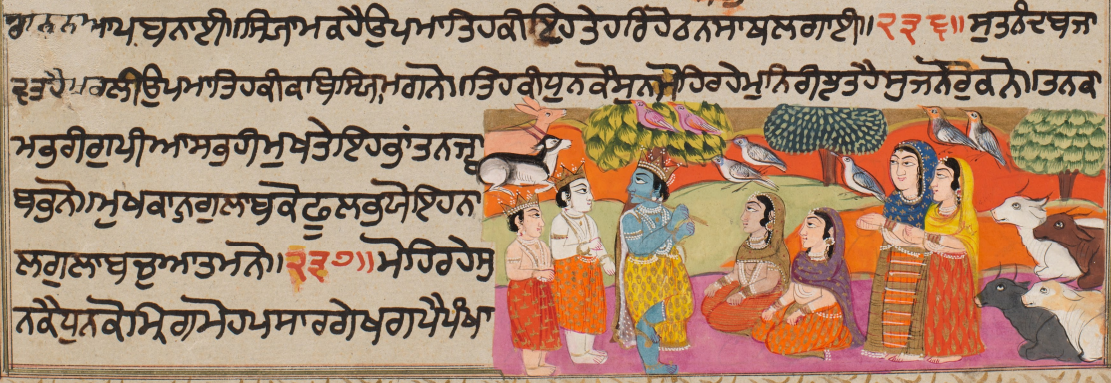 ਆਪਬਨਾਈ॥ਸਿਆਮਕਹੈਉਪਮਾਤਿਹਕੀਇਹਤੇਹਰਿਹੋਠਨਸਾਥਲਗਾਈ॥੨੩੬॥ਸੁਤਨੰਦਬਜਾ
ਵਤਹੈਮੁਰਲੀਉਪਮਾਤਿਹਕੀਕਾਬਿਸਿਆਮਗਨੋ॥ਤਿਹਕੀਧੁਨਕੌਸੁਨਮੋਹਿਰਹੇਮੁਨਿਰੀਝਤਹੈਸੁਜਨੋਰੁਕਨੋ॥ਤਨਕਾ
ਮਭਰੀਗੁਪੀਆਸਭਹੀਮੁਖਤੇਇਹਭਾਂਤਨਜ੍ਵਾ
ਬਭਨੋ॥ਮੁਖਕਾਨ੍ਹਗੁਲਾਬਕੋਫੂਲਭਯੋਇਹਨਾ
ਲਗੁਲਾਬਚੁਆਤਮਨੋ॥੨੩੭॥ਮੋਹਿਰਹੇਸੁ
ਨਕੈਧੁਨਕੋਮ੍ਰਿਗਮੋਹਪਸਾਰਗੇਖਗਪੈਪੰਖਾ